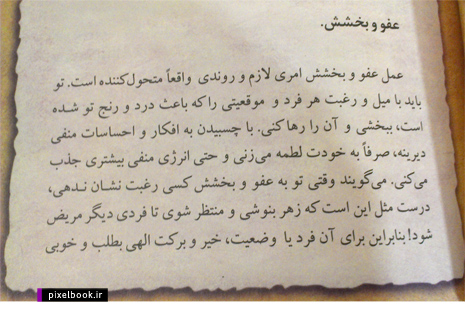 عفو و بخشش.
عمل عفو و بخشش امری لازم و روندی واقعاً متحول‌کننده است. تو
باید با میل و رغبت هر فرد و موقعیتی را که باعث درد و رنج تو شده
است، ببخشی و آن را رها کنی. با چسبیدن به افکار و احساسات منفی
دیرینه، صرفاً به خودت لطمه می‌زنی و حتی انرژی منفی بیشتری جذب
می‌کنی. می‌گویند وقتی تو به عفو و بخشش کسی رغبت نشان ندهی،
درست مثل این است که زهر بنوشی و منتظر شوی تا فردی دیگر مریض
شود! بنابراین برای آن فرد یا وضعیت، خیر و برکت الهی بطلب و خوبی
pixelbook.ir